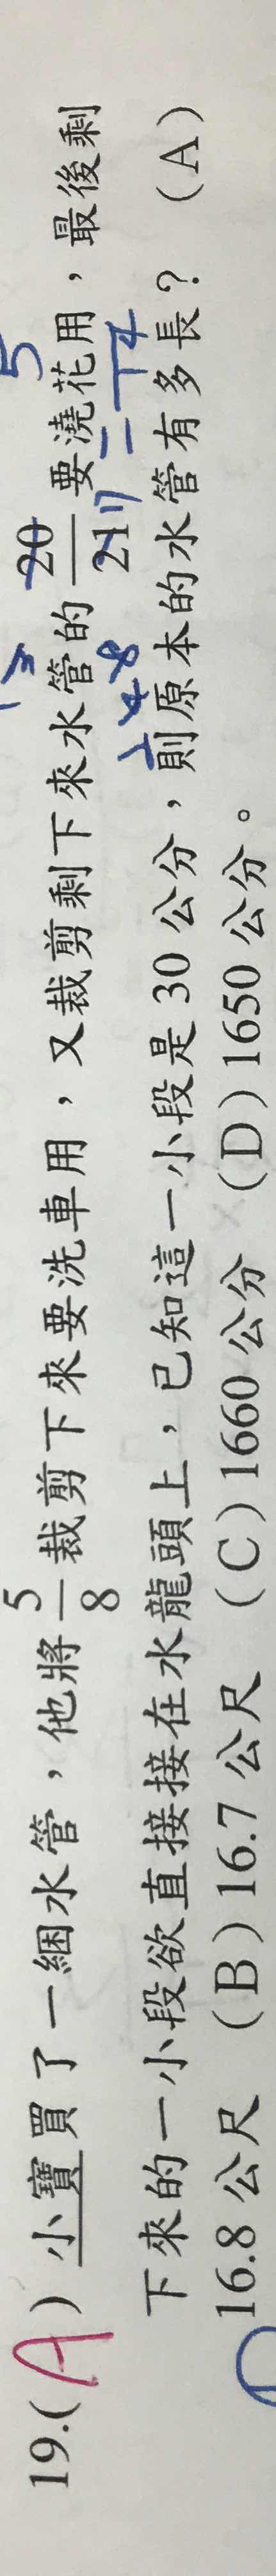 19.( A ) 小寶買了一綑水管，他將5/8裁剪下來要洗車用，又裁剪剩下來水管的20/21要澆花用，最後剩
下來的一小段欲直接接在水龍頭上，已知這一小段是30公分，則原本的水管有多長？ （A）
16.8公尺 （B）16.7公尺 （C）1660公分 （D）1650公分。